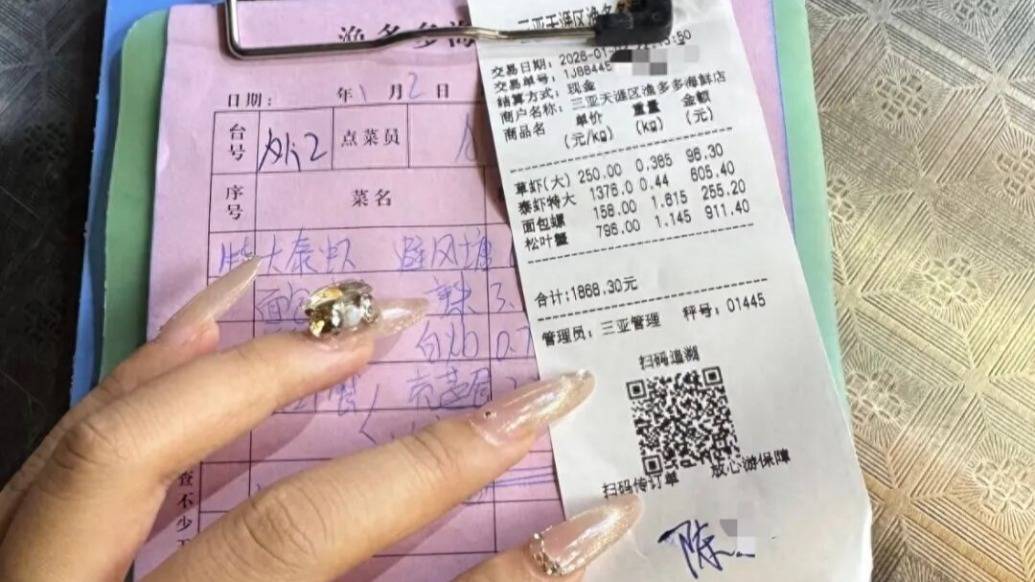 渔多多海
日期: 年1月2日
台号 外2 点菜员
序号 菜名
特大泰虾 避风塘
面包 辣
白灼 0.7
蟹
查不少
三亚天涯区渔多
交易日期: 2026-01
交易单号: 1J88445
结算方式: 现金
商户名称: 三亚天涯区渔多多海鲜店
商品名 单价 重量 金额
(元/kg) (kg) (元)
草虾(大) 250.00 0.385 96.30
泰虾特大 1376.0 0.44 605.40
面包螺 158.00 1.615 255.20
松叶蟹 796.00 1.145 911.40
合计:1868.30元
管理员: 三亚管理 秤号: 01445
扫码追溯
扫码传订单 放心游保障
陈